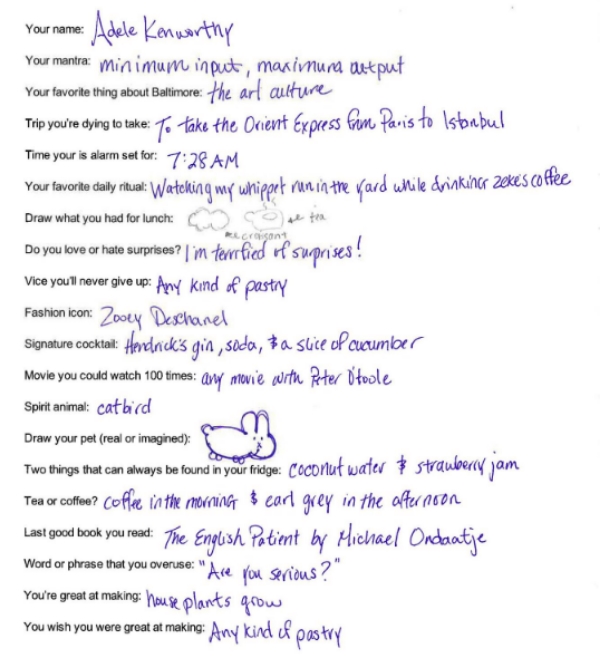 Your name: Adele Kenworthy
Your mantra: minimum input, maximum output
Your favorite thing about Baltimore: the art culture
Trip you're dying to take: To take the Orient Express from Paris to Istanbul
Time your is alarm set for: 7:28 AM
Your favorite daily ritual: Watching my whippet run in the yard while drinking zeke's coffee
Draw what you had for lunch: tea
croissant
Do you love or hate surprises? I'm terrified of surprises!
Vice you'll never give up: Any kind of pastry
Fashion icon: Zooey Deschanel
Signature cocktail: Hendrick's gin, soda, & a slice of cucumber
Movie you could watch 100 times: any movie with Peter O'toole
Spirit animal: catbird
Draw your pet (real or imagined):
Two things that can always be found in your fridge: coconut water & strawberry jam
Tea or coffee? coffee in the morning & earl grey in the afternoon
Last good book you read: The English Patient by Michael Ondaatje
Word or phrase that you overuse: "Are you serious?"
You're great at making: house plants grow
You wish you were great at making: Any kind of pastry